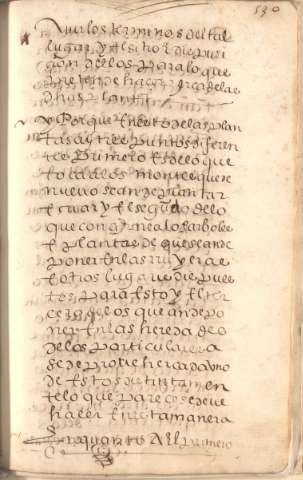 530
Aver los terminos del tal
lugar y el sitio y dispusi
cion dellos para lo que
pretende hacer cerca de las
dhas plantas
y Porque En esto de las plan
tas ay tres puntos diferen
tes El primero Es de lo que
toca a los montes que de
nuevo se an de plantar
E criar y El segundo de lo
que con gineta los arboles
E plantas de que se an de
poner En las riveras
E otros lugares dispues
tos para Esto y El ter
cero de los que an de po
ner En las heredades
de los particulares a
se de proveher a cada uno
de Estos distintamen
te lo que parece se deve
hacer En esta manera
En quanto Al primero